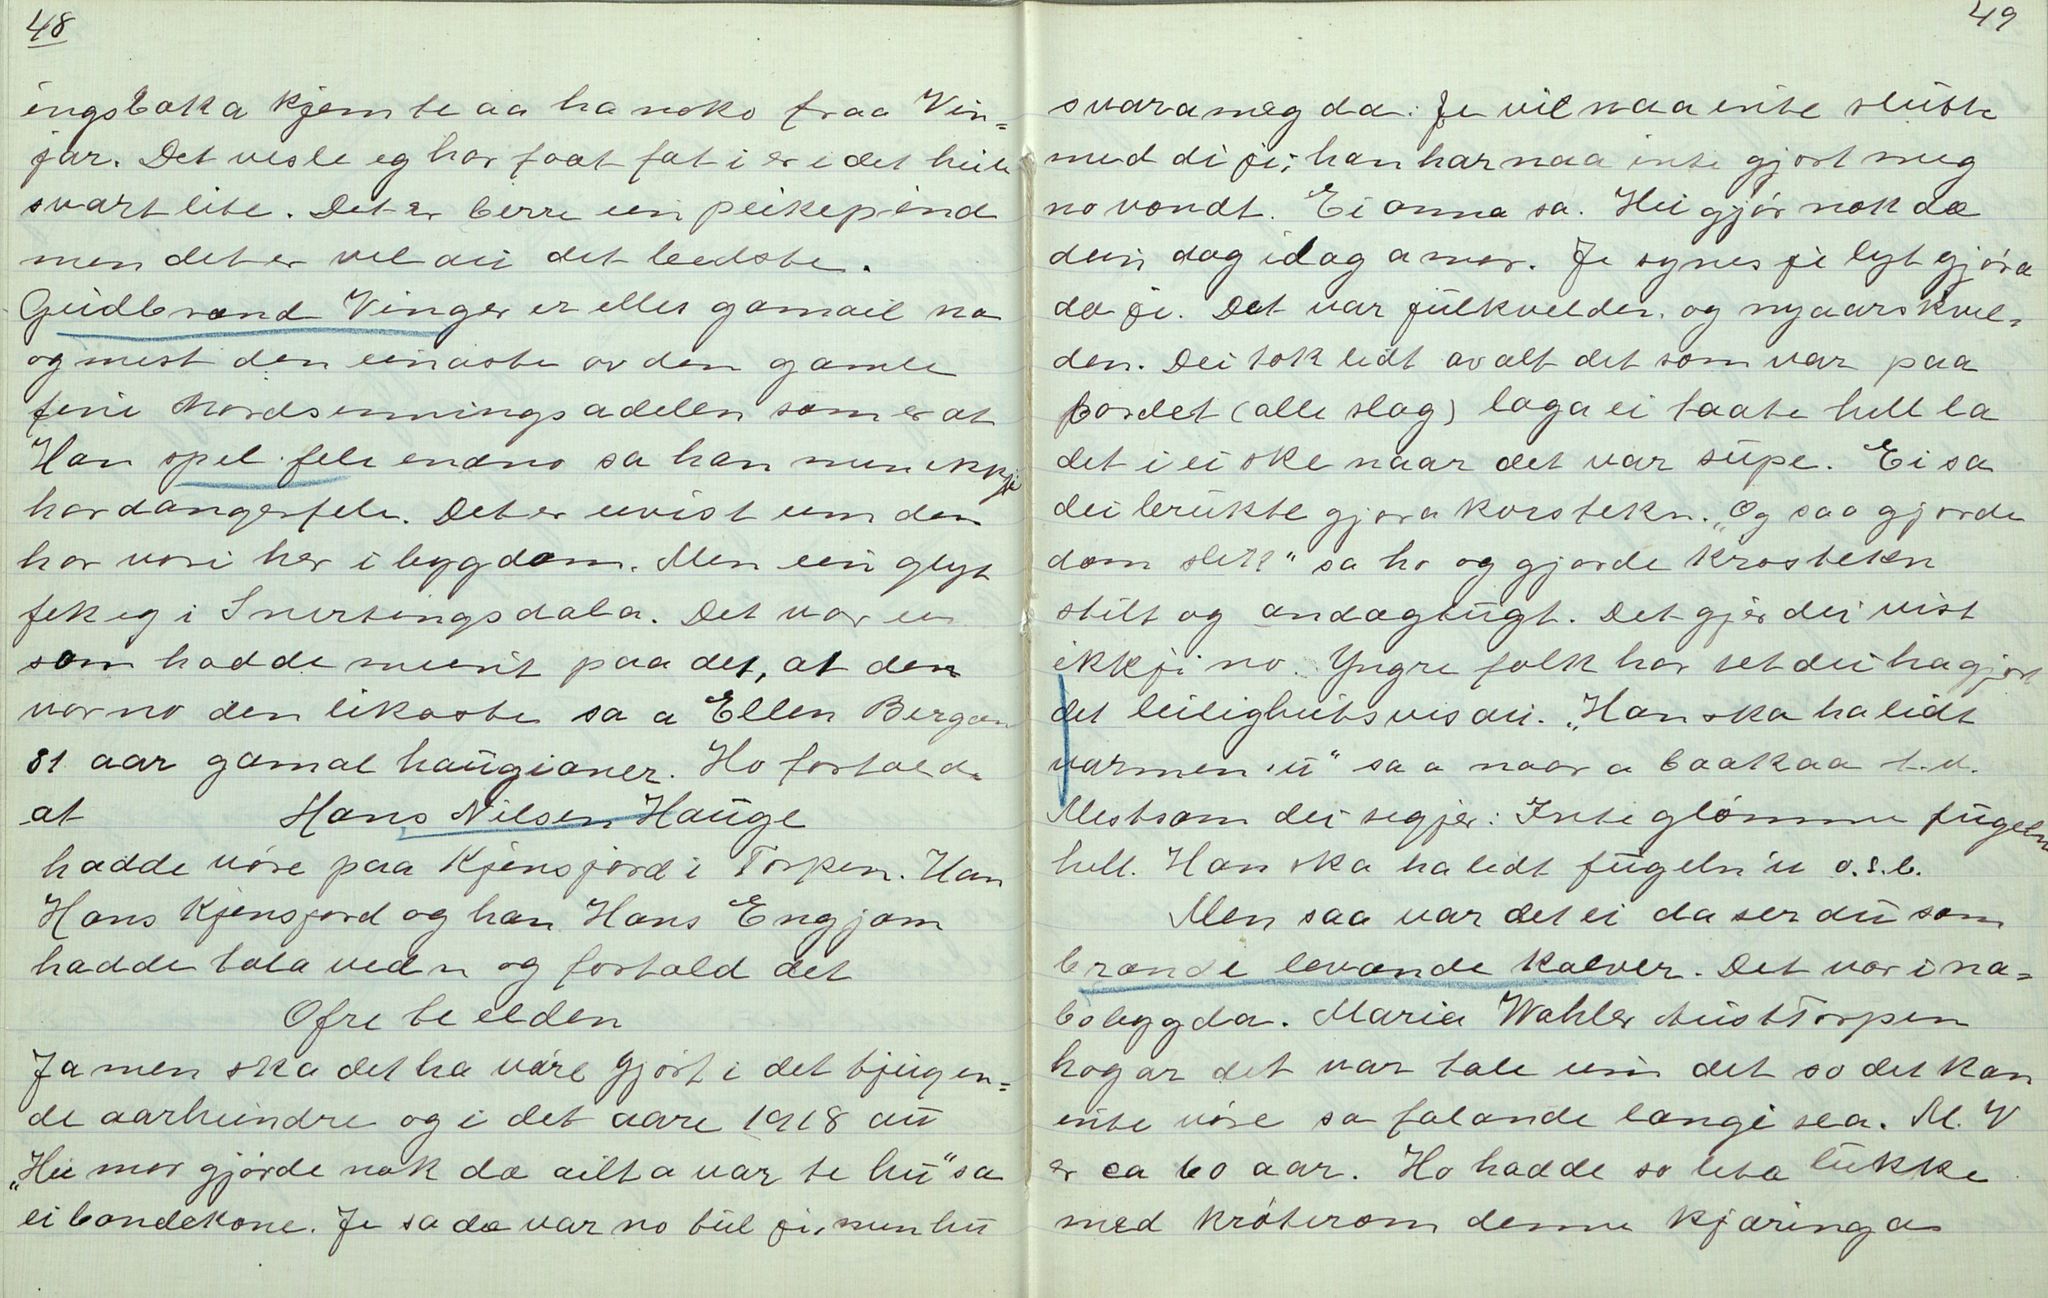 48
ingsboka kjem te aa ha noko fraa Vin=
jar. Det vesle eg har faat fat i er i det heile
svart lite. Det er berre ein peikepind
men det er vel au det bedste.
Gudbrand Vinger er elles gamail na
og mest den einaste av den gamle
fine Nordsinningsadelen som er at
Han spel fele endno sa han men ikkje
hardangerfele. Det er uvist um den
har vori her i bygdom. Men ein glyt
fek eg i Snertingsdala. Det var ein
som hadde meint paa det, at den
var no den likaste sa a Ellen Bergan
81 aar gamal haugianer. Ho fortalde
at Hans Nilsen Hauge
hadde vøre paa Kjensjord i Torpen. Han
Hans Kjensjord og han Hans Engjom
hadde tala ved n og fortald det
Ofre te elden
Ja men ska det ha vøre gjort i det tjugen=
de aarhundre og i det aare 1918 au
„Hu mor gjorde nok dæ ailt a var te hu" sa
ei bondekone. Je sa dæ var no tul je, men hu
49
svara meg da: Je vil naa inte slutte
med di je; han har naa inte gjort meg
no vondt. Ei anna sa. Hu gjør nok dæ
dein dag idag a mor. Je synes je lyt gjøra
dæ je. Det var julkvelden og nyaarskvel=
den. Dei tok lidt av alt det som var paa
bordet (alle slag) laga ei taate hell la
det i ei ske naar det var supe. Ei sa
dei brukte gjøra korstekn. „Og saa gjorde
dom slik" sa ho og gjorde krosteken
stilt og andægtugt. Det gjer dei vist
ikkji no. Yngre folk har set dei ha gjort
det leilighetsvis au. „Han ska ha lidt
varmen 'u" sa a naar a baakaa t.d.
Mest som dei segjer: Inte glømme fugeln
hell. Han ska ha lidt fugeln 'u o.s.b.
Men saa var det ei da ser du som
brænde levande kalver. Det var i na=
bobygda. Maria Wahler AustTorpen
hogar det var tale um det so det kan
inte vøre sa falande længe sea. M. V
er ca 60 aar. Ho hadde so lita lukke
med krøterom denne kjæringa